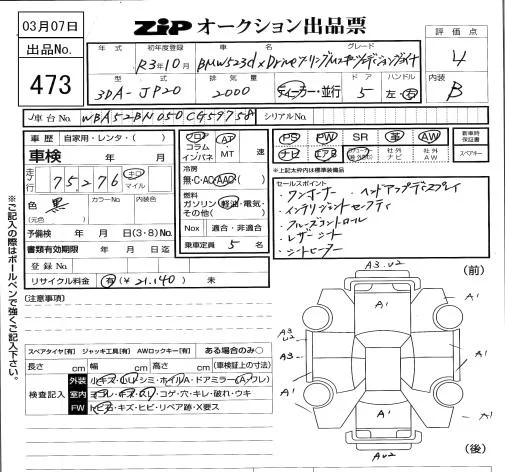 03月07日
ZIP オークション出品票
出品No.
473
年式 初年度登録 車名 グレード
R3年10月 BMW523d xDriveツーリングMスピリットエディションジョイ+
型式 排気量 ドア ハンドル
3DA-JP20 2000 ディーラー・並行 5 左・右
評価点
4
内装
B
車台No. WBA52BN050CG59758 シリアルNo.
車歴 自家用・レンタ・( )
車検 年 月
走行 75,276 km マイル
色 黒 (元色) カラーNo. 内装色
予備検 年 月 日(3・8)No.
書類有効期限 年 月 日迄
登録No.
リサイクル料金 有(¥21,140) 未
フロア コラム インパネ AT・MT 速
冷房
無・C・AC・AAC
燃料
ガソリン・軽油・電気・その他( )
Nox 適合・非適合
乗車定員 5 名
PS PW SR 革 AW
ナビ エアB 社外ナビ 社外AW
新車時保証書
スペアキー
*上記太枠内は標準装備品
セールスポイント
・ワンオーナー ・ヘッドアップディスプレイ
・インテリジェントセーフティ
・クルーズコントロール
・レザーシート
・シートヒーター
(注意事項)
スペアタイヤ[有] ジャッキ工具[有] AWロックキー[有] ある場合のみ○
長さ cm 幅 cm 高さ cm (車検証上の寸法)
検査記入
外装 小キズ・小U・シミ・ホイルA・ドアミラー(A・ワレ)
室内 ヨゴレ・キズ・スレ・コゲ・穴・キレ・破れ・ウキ
FW トビ石・キズ・ヒビ・リペア跡・X要ス
※ご記入の際はボールペンで強くご記入下さい。
A3.U2
(前)
A1
A1
A1
A3
U2
A3
A1
A1
A1
A1
AU2
(後)